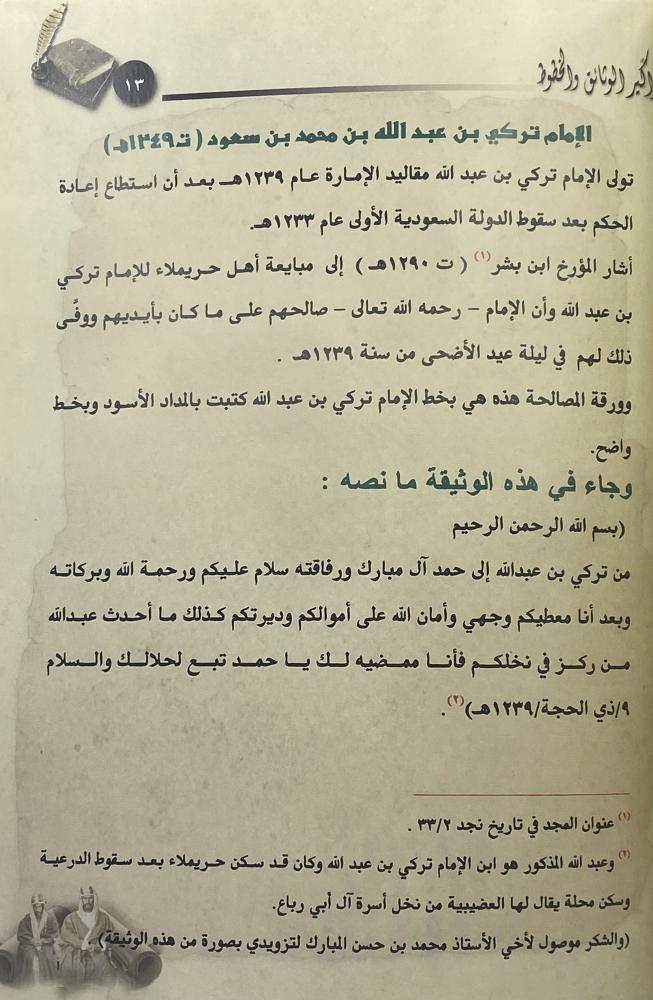 أكبر الوثائق والخطوط
١٣
الإمام تركي بن عبد الله بن محمد بن سعود ( ت١٢٤٩هـ)
تولى الإمام تركي بن عبد الله مقاليد الإمارة عام ١٢٣٩هـ بعد أن استطاع إعادة
الحكم بعد سقوط الدولة السعودية الأولى عام ١٢٣٣هـ.
أشار المؤرخ ابن بشر(١) ( ت ١٢٩٠هـ ) إلى مبايعة أهل حريملاء للإمام تركي
بن عبد الله وأن الإمام – رحمه الله تعالى – صالحهم على ما كان بأيديهم ووفَّى
ذلك لهم في ليلة عيد الأضحى من سنة ١٢٣٩هـ .
وورقة المصالحة هذه هي بخط الإمام تركي بن عبد الله كتبت بالمداد الأسود وبخط
واضح.
وجاء في هذه الوثيقة ما نصه :
(بسم الله الرحمن الرحيم
من تركي بن عبدالله إلى حمد آل مبارك ورفاقته سلام عليكم ورحمة الله وبركاته
وبعد أنا معطيكم وجهي وأمان الله على أموالكم وديرتكم كذلك ما أحدث عبدالله
من ركز في نخلكم فأنا ممضيه لك يا حمد تبع لحلالك والسلام
٩/ذي الحجة/١٢٣٩هـ)(٢).
(١) عنوان المجد في تاريخ نجد ٣٣/٢ .
(٢) وعبد الله المذكور هو ابن الإمام تركي بن عبد الله وكان قد سكن حريملاء بعد سقوط الدرعية
وسكن محلة يقال لها العضيبية من نخل أسرة آل أبي رباع.
(والشكر موصول لأخي الأستاذ محمد بن حسن المبارك لتزويدي بصورة من هذه الوثيقة) .